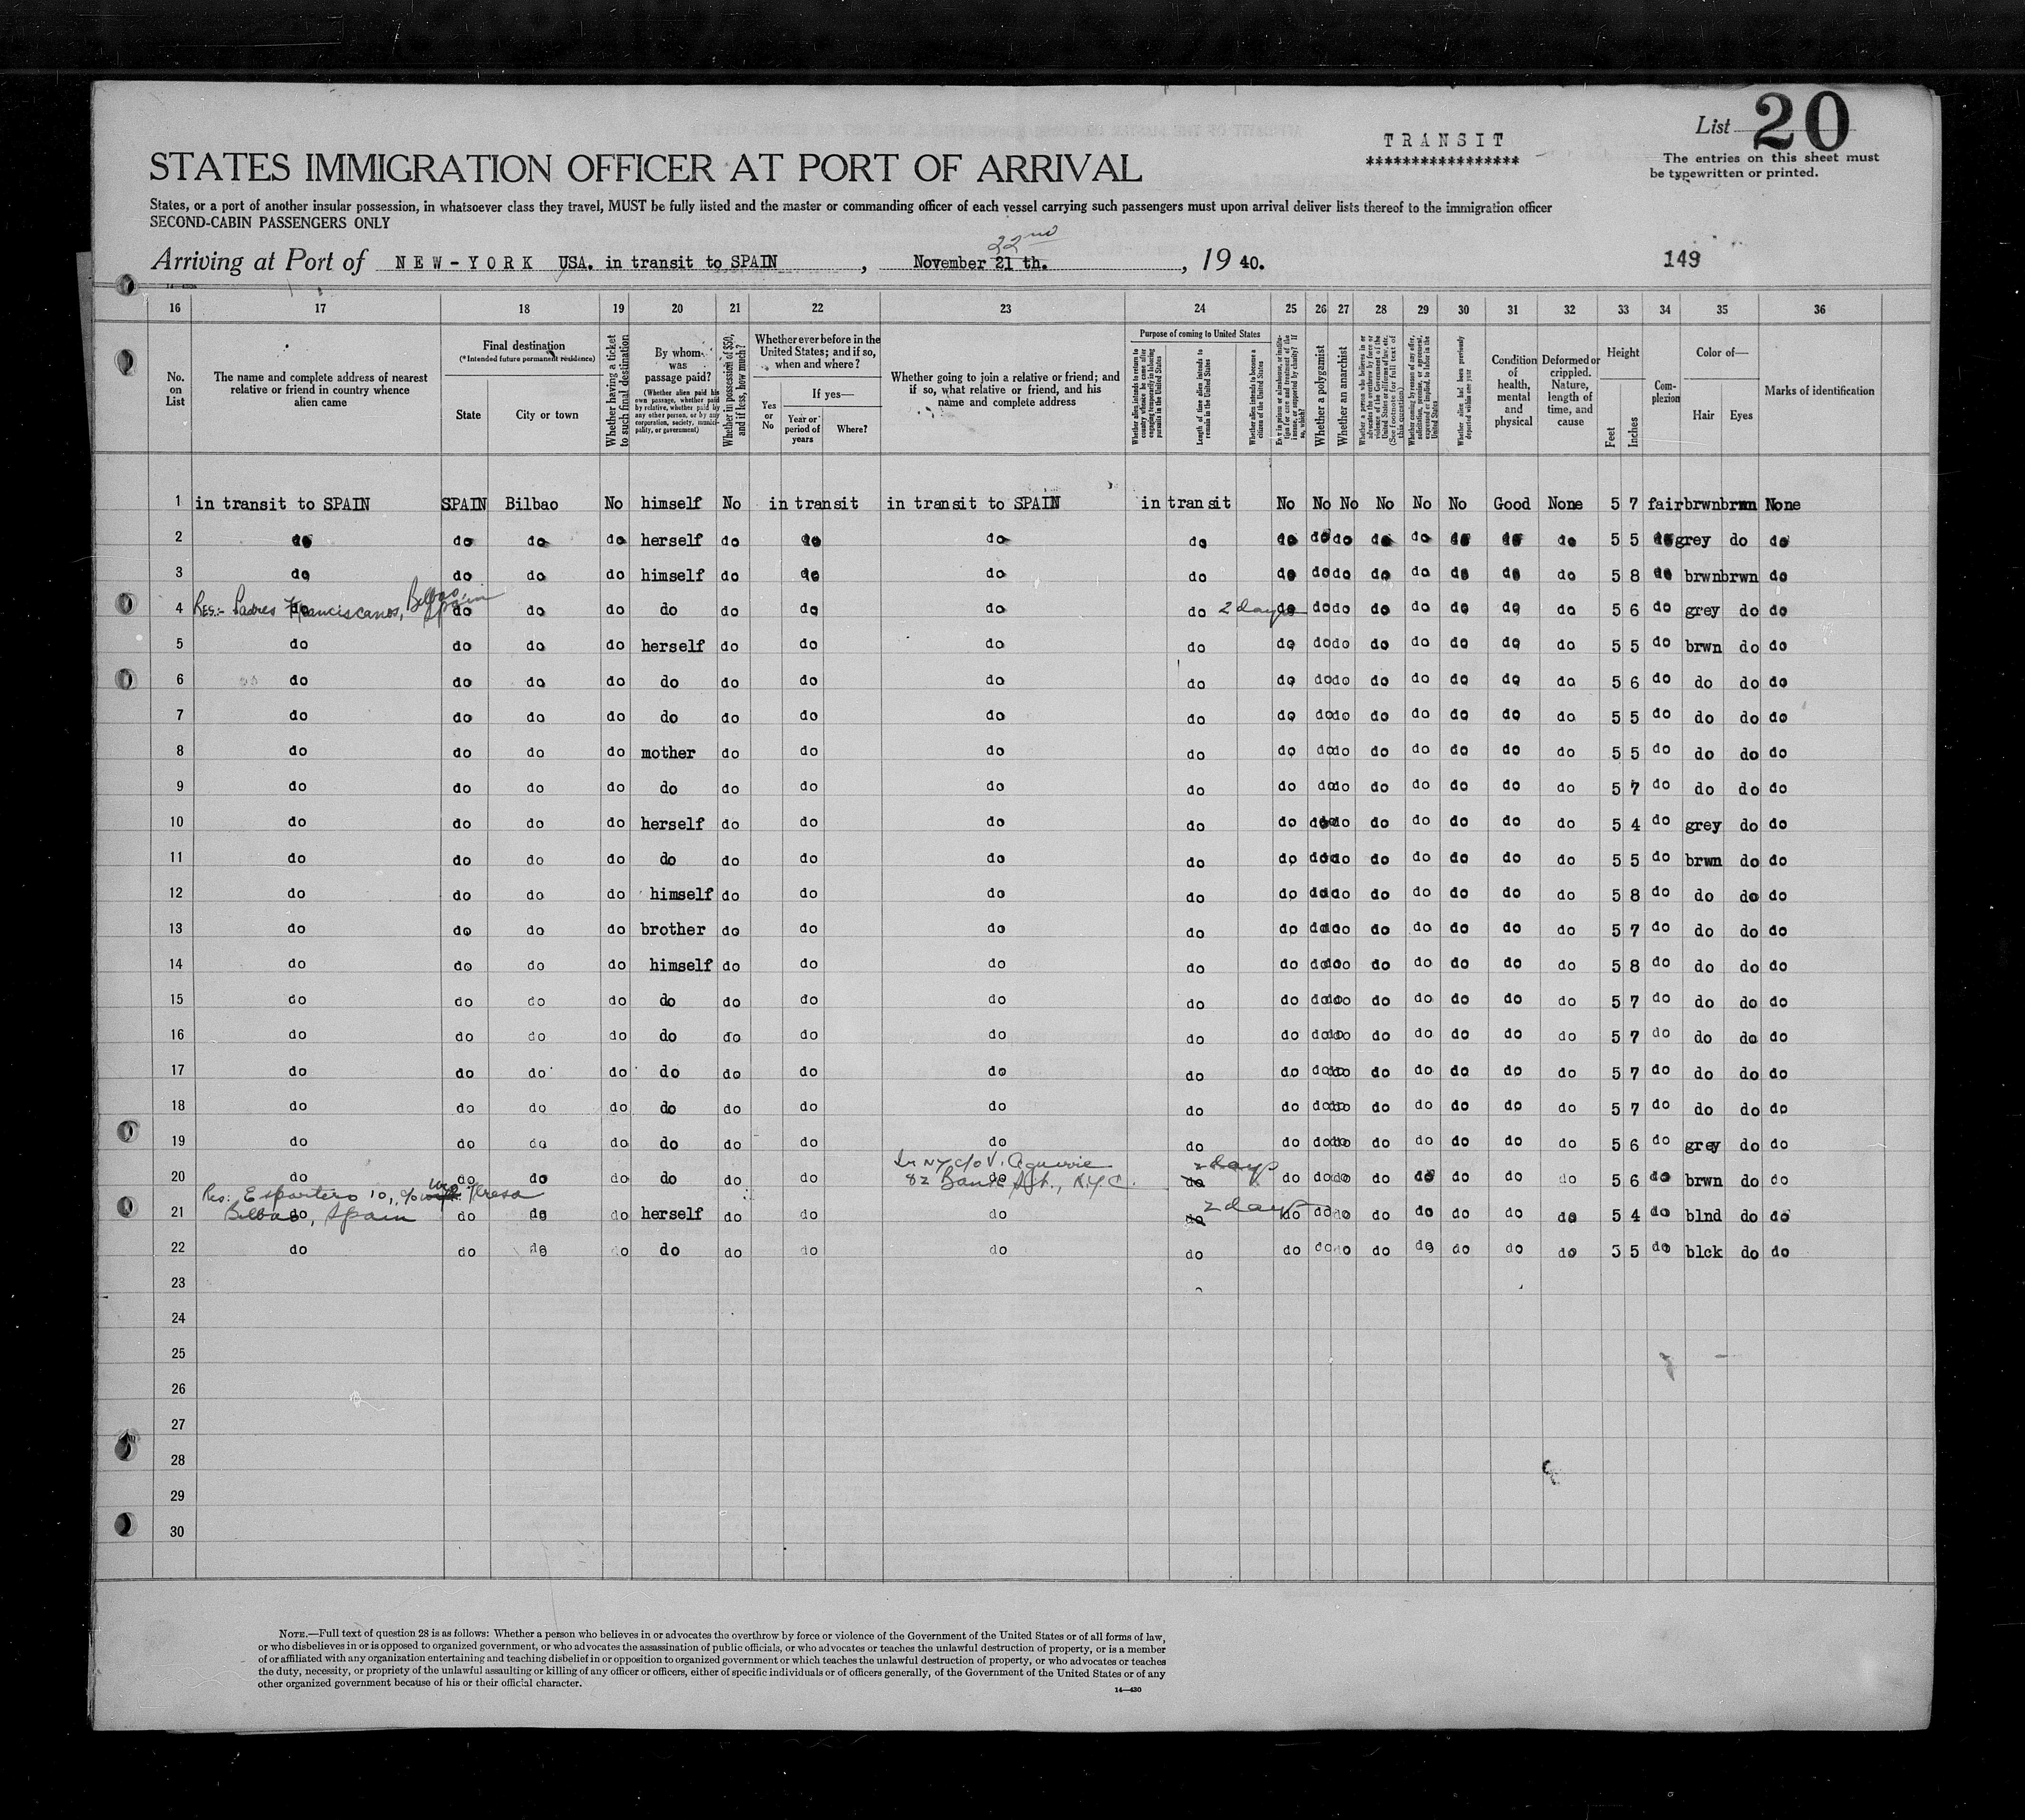 TRANSIT
*****************
List 20
The entries on this sheet must
be typewritten or printed.
STATES IMMIGRATION OFFICER AT PORT OF ARRIVAL
States, or a port of another insular possession, in whatsoever class they travel, MUST be fully listed and the master or commanding officer of each vessel carrying such passengers must upon arrival deliver lists thereof to the immigration officer
SECOND-CABIN PASSENGERS ONLY
22nd
Arriving at Port of NEW-YORK USA. in transit to SPAIN , November 21 th. , 19 40.
149
16 17 18 19 20 21 22 23 24 25 26 27 28 29 30 31 32 33 34 35 36
No. on List
The name and complete address of nearest relative or friend in country whence alien came
Final destination
(*Intended future permanent residence)
State
City or town
Whether having a ticket to such final destination
By whom was passage paid?
(Whether alien paid his own passage, whether paid by relative, whether paid by any other person, or by any corporation, society, municipality, or government)
Whether in possession of $50, and if less, how much?
Whether ever before in the United States; and if so, when and where?
Yes or No
If yes—
Year or period of years
Where?
Whether going to join a relative or friend; and if so, what relative or friend, and his name and complete address
Purpose of coming to United States
Whether alien intends to return to country whence he came after engaging temporarily in laboring pursuits in the United States
Length of time alien intends to remain in the United States
Whether alien intends to become a citizen of the United States
Whether a polygamist
Whether an anarchist
Whether alien had been previously deported within one year
Condition of health, mental and physical
Deformed or crippled. Nature, length of time, and cause
Height
Feet
Inches
Complexion
Color of—
Hair
Eyes
Marks of identification
1 in transit to SPAIN SPAIN Bilbao No himself No in transit in transit to SPAIN in transit No No No No No No Good None 5 7 fair brwn brwn None
2 do do do do herself do do do do do do do do do do do do 5 5 do grey do do
3 do do do do himself do do do do do do do do do do do do 5 8 do brwn brwn do
Res:- Padres Franciscanos, Bilbao, Spain
4 do do do do do do do do do 2 days do do do do do do do do 5 6 do grey do do
5 do do do do herself do do do do do do do do do do do do 5 5 do brwn do do
6 do do do do do do do do do do do do do do do do do 5 6 do do do do
7 do do do do do do do do do do do do do do do do do 5 5 do do do do
8 do do do do mother do do do do do do do do do do do do 5 5 do do do do
9 do do do do do do do do do do do do do do do do do 5 7 do do do do
10 do do do do herself do do do do do do do do do do do do 5 4 do grey do do
11 do do do do do do do do do do do do do do do do do 5 5 do brwn do do
12 do do do do himself do do do do do do do do do do do do 5 8 do do do do
13 do do do do brother do do do do do do do do do do do do 5 7 do do do do
14 do do do do himself do do do do do do do do do do do do 5 8 do do do do
15 do do do do do do do do do do do do do do do do do 5 7 do do do do
16 do do do do do do do do do do do do do do do do do 5 7 do do do do
17 do do do do do do do do do do do do do do do do do 5 7 do do do do
18 do do do do do do do do do do do do do do do do do 5 7 do do do do
19 do do do do do do do do do do do do do do do do do 5 6 do grey do do
In NY c/o V. Aguirre 2 days
82 Bank St., N.Y.C.
20 do do do do do do do do do do do do do do do do do 5 6 do brwn do do
Res: Espartero 10, c/o Teresa
Bilbao, Spain
2 days
21 do do do do herself do do do do do do do do do do do do 5 4 do blnd do do
22 do do do do do do do do do do do do do do do do do 5 5 do blck do do
23
24
25
26
27
28
29
30
NOTE.—Full text of question 28 is as follows: Whether a person who believes in or advocates the overthrow by force or violence of the Government of the United States or of all forms of law,
or who disbelieves in or is opposed to organized government, or who advocates the assassination of public officials, or who advocates or teaches the unlawful destruction of property, or is a member
of or affiliated with any organization entertaining and teaching disbelief in or opposition to organized government or which teaches the unlawful destruction of property, or who advocates or teaches
the duty, necessity, or propriety of the unlawful assaulting or killing of any officer or officers, either of specific individuals or of officers generally, of the Government of the United States or of any
other organized government because of his or their official character.
14—430